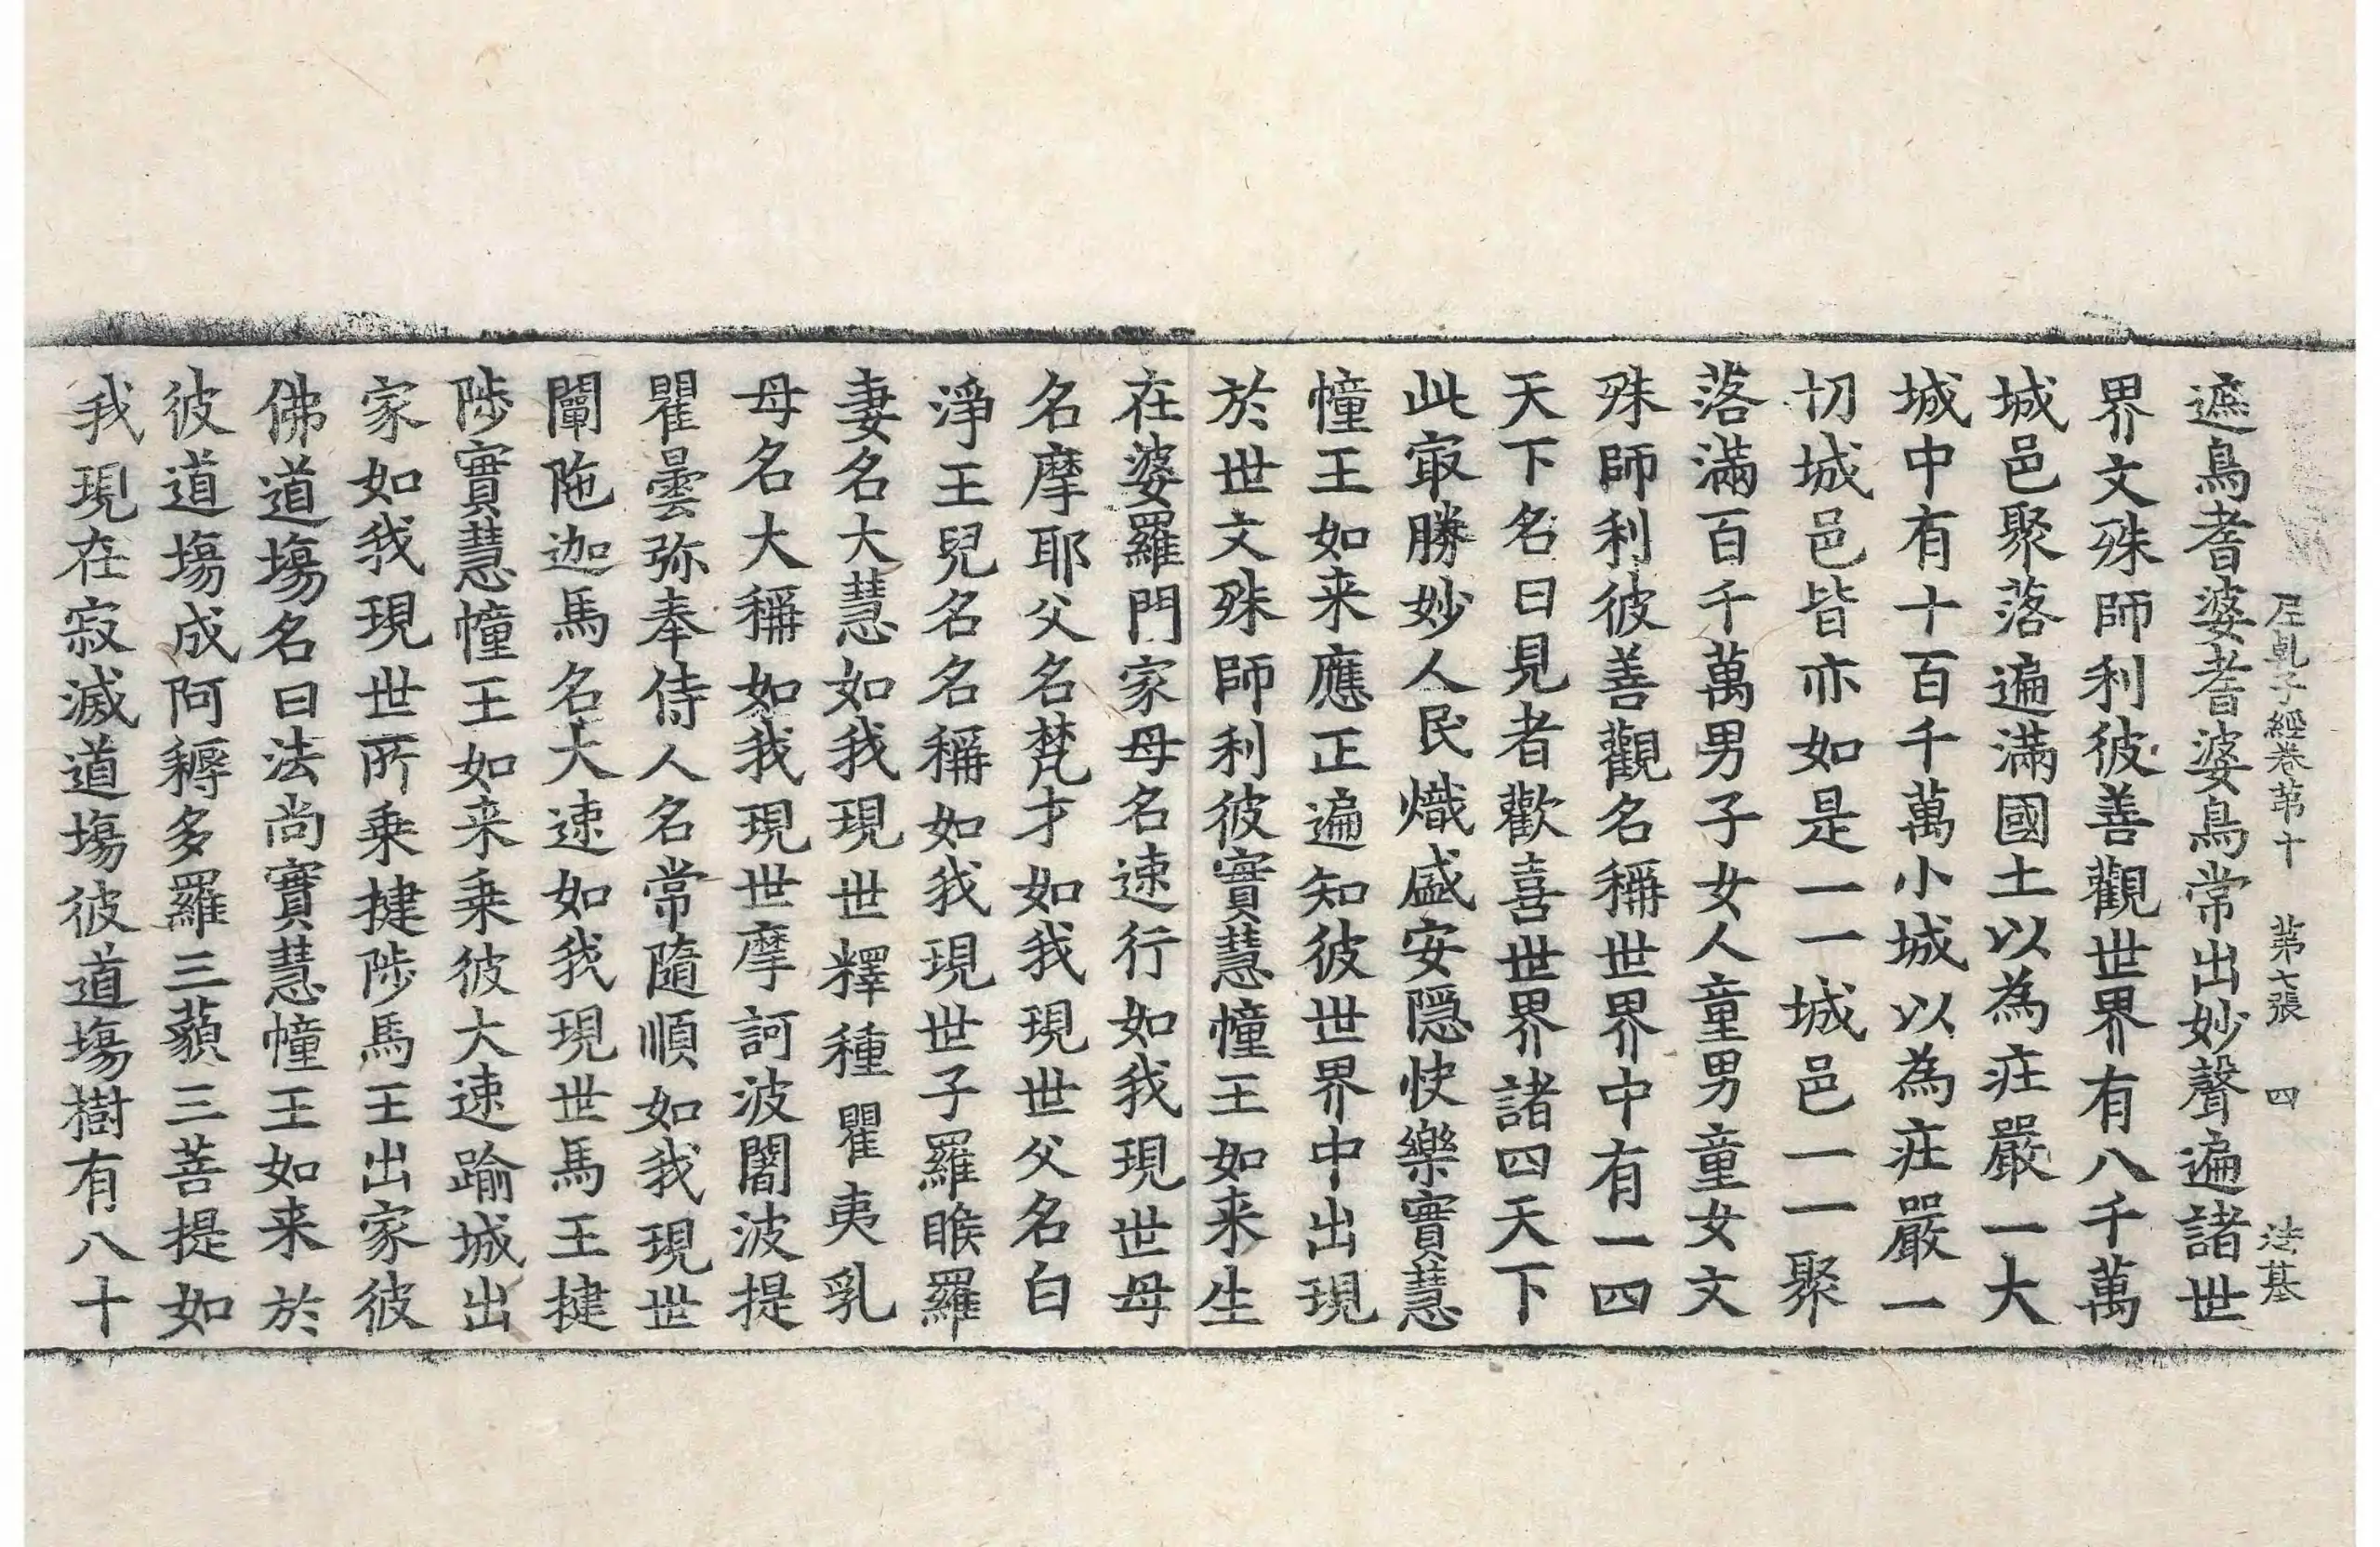 尼乹子經卷苐十 苐七張 四 法基
遮鳥耆婆耆婆鳥常出妙聲遍諸世
界文殊師利彼善觀世界有八千萬
城邑聚落遍滿國土以為庄嚴一大
城中有十百千萬小城以為庄嚴一
切城邑皆亦如是一一城邑一一聚
落滿百千萬男子女人童男童女文
殊師利彼善觀名稱世界中有一四
天下名曰見者歡喜世界諸四天下
此㝡勝妙人民熾盛安隱快樂實慧
幢王如来應正遍知彼世界中出現
於世文殊師利彼實慧幢王如来生
在婆羅門家母名速行如我現世母
名摩耶父名梵才如我現世父名白
淨王兒名名稱如我現世子羅睺羅
妻名大慧如我現世釋種瞿夷乳
母名大稱如我現世摩訶波闍波提
瞿曇弥奉侍人名常隨順如我現世
闡陁迦馬名大速如我現世馬王揵
陟實慧幢王如来乗彼大速踰城出
家如我現世所乗揵陟馬王出家彼
佛道塲名曰法尚實慧幢王如来於
彼道塲成阿耨多羅三藐三菩提如
我現在寂滅道塲彼道塲樹有八十